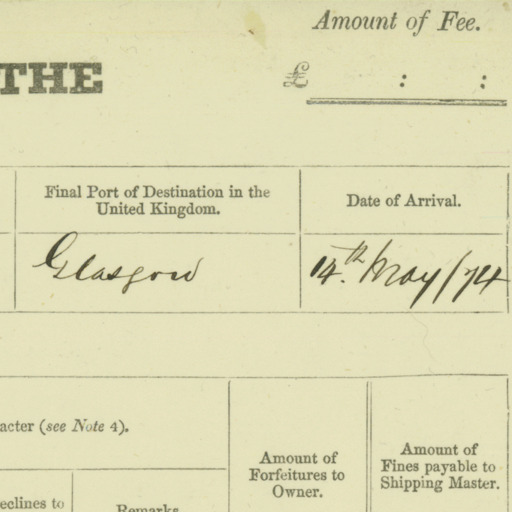 Amount of Fee.
THE
£ : :
Final Port of Destination in the
United Kingdom.
Date of Arrival.
Glasgow
14th. May/74
acter (see Note 4).
Amount of
Forfeitures to
Owner.
Amount of
Fines payable to
Shipping Master.
eclines to
Remarks